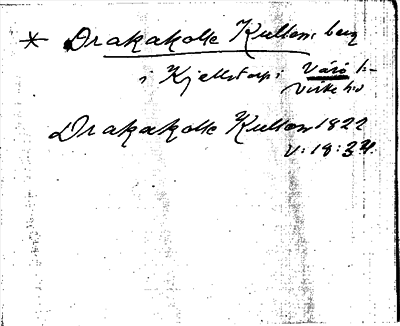 * Drakakolle Kullen, berg
i Kjellstorp i Värö s:n
Viske hd
Drakakolle Kullen 1822
V: 18: 34.